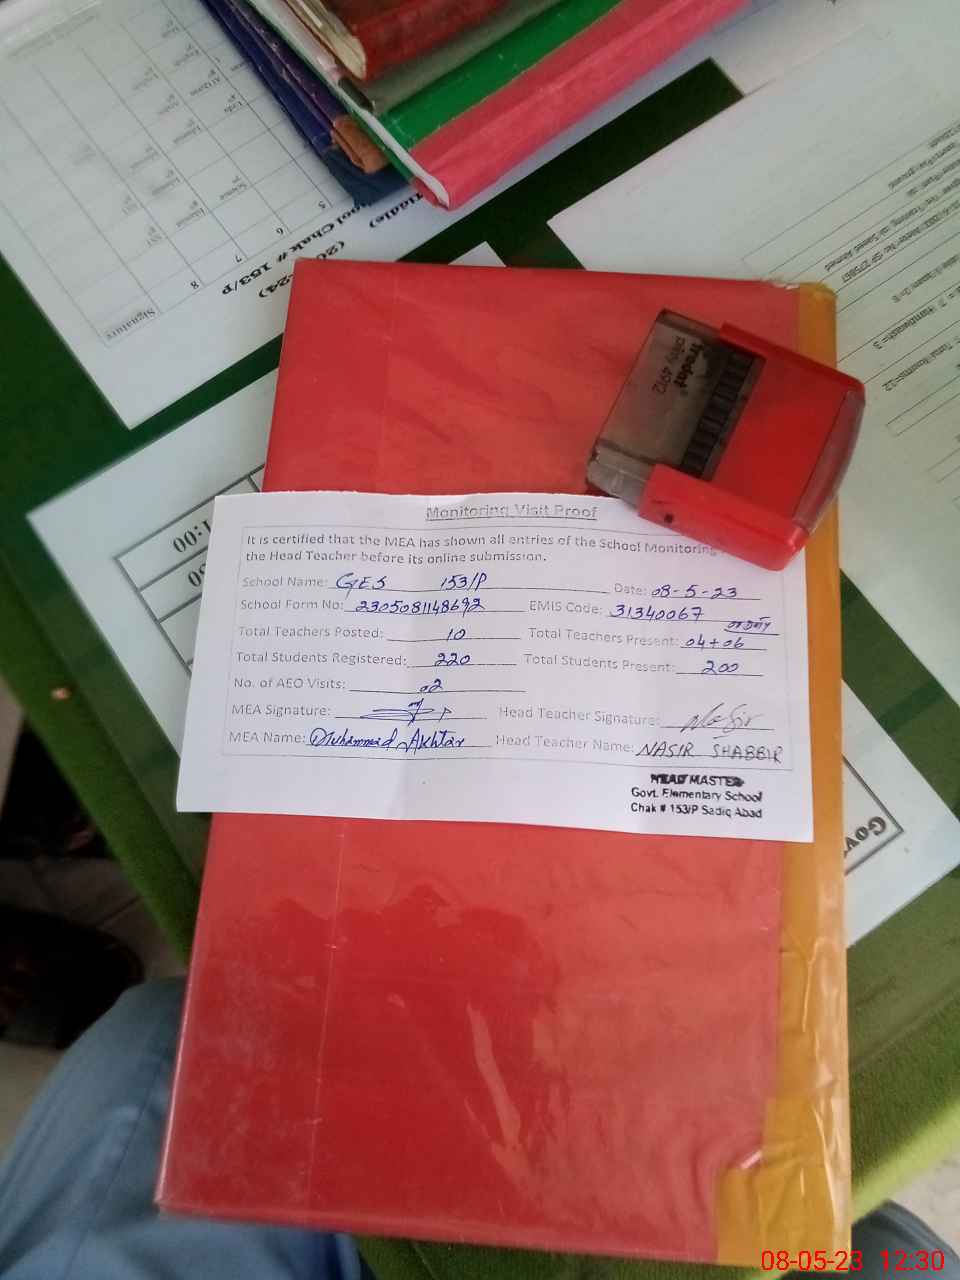 Monitoring Visit Proof
It is certified that the MEA has shown all entries of the School Monitoring
the Head Teacher before its online submission.
School Name: GES 153/P Date: 08-5-23
School Form No: 2305081148692 EMIS Code: 31340067
Total Teachers Posted: 10 Total Teachers Present: 04+06 on Duty
Total Students Registered: 220 Total Students Present: 200
No. of AEO Visits: 02
MEA Signature: Head Teacher Signature: Nasir
MEA Name: Muhammad Akhtar Head Teacher Name: NASIR SHABBIR
HEAD MASTER
Govt. Elementary School
Chak # 153/P Sadiq Abad
Trodat
printy 4912
Chak # 153/P
Signature
5
6
7
8
Science
1:00
00:
Gov
08-05-23 12:30